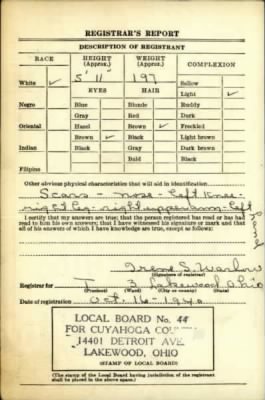 REGISTRAR'S REPORT
DESCRIPTION OF REGISTRANT
RACE HEIGHT (Approx.) WEIGHT (Approx.) COMPLEXION
5' 11" 197
White ✓ Sallow
EYES HAIR Light ✓
Negro Blue Blonde Ruddy
Gray Red Dark
Oriental Hazel Brown ✓ Freckled
Brown ✓ Black Light brown
Indian Black Gray Dark brown
Bald Black
Filipino
Other obvious physical characteristics that will aid in identification
Scars - nose - left knee -
right leg - right upper arm - left
I certify that my answers are true; that the person registered has read or has had
read to him his own answers; that I have witnessed his signature or mark and that
all of his answers of which I have knowledge are true, except as follows:
Irene S. Warlow
(Signature of registrar)
Registrar for I 3 Lakewood Ohio
(Precinct) (Ward) (City or county) (State)
Date of registration Oct. 16 - 1940
LOCAL BOARD No. 44
FOR CUYAHOGA
14401 DETROIT AVE
LAKEWOOD, OHIO
(STAMP OF LOCAL BOARD)
(The stamp of the Local Board having jurisdiction of the registrant
shall be placed in the above space.)